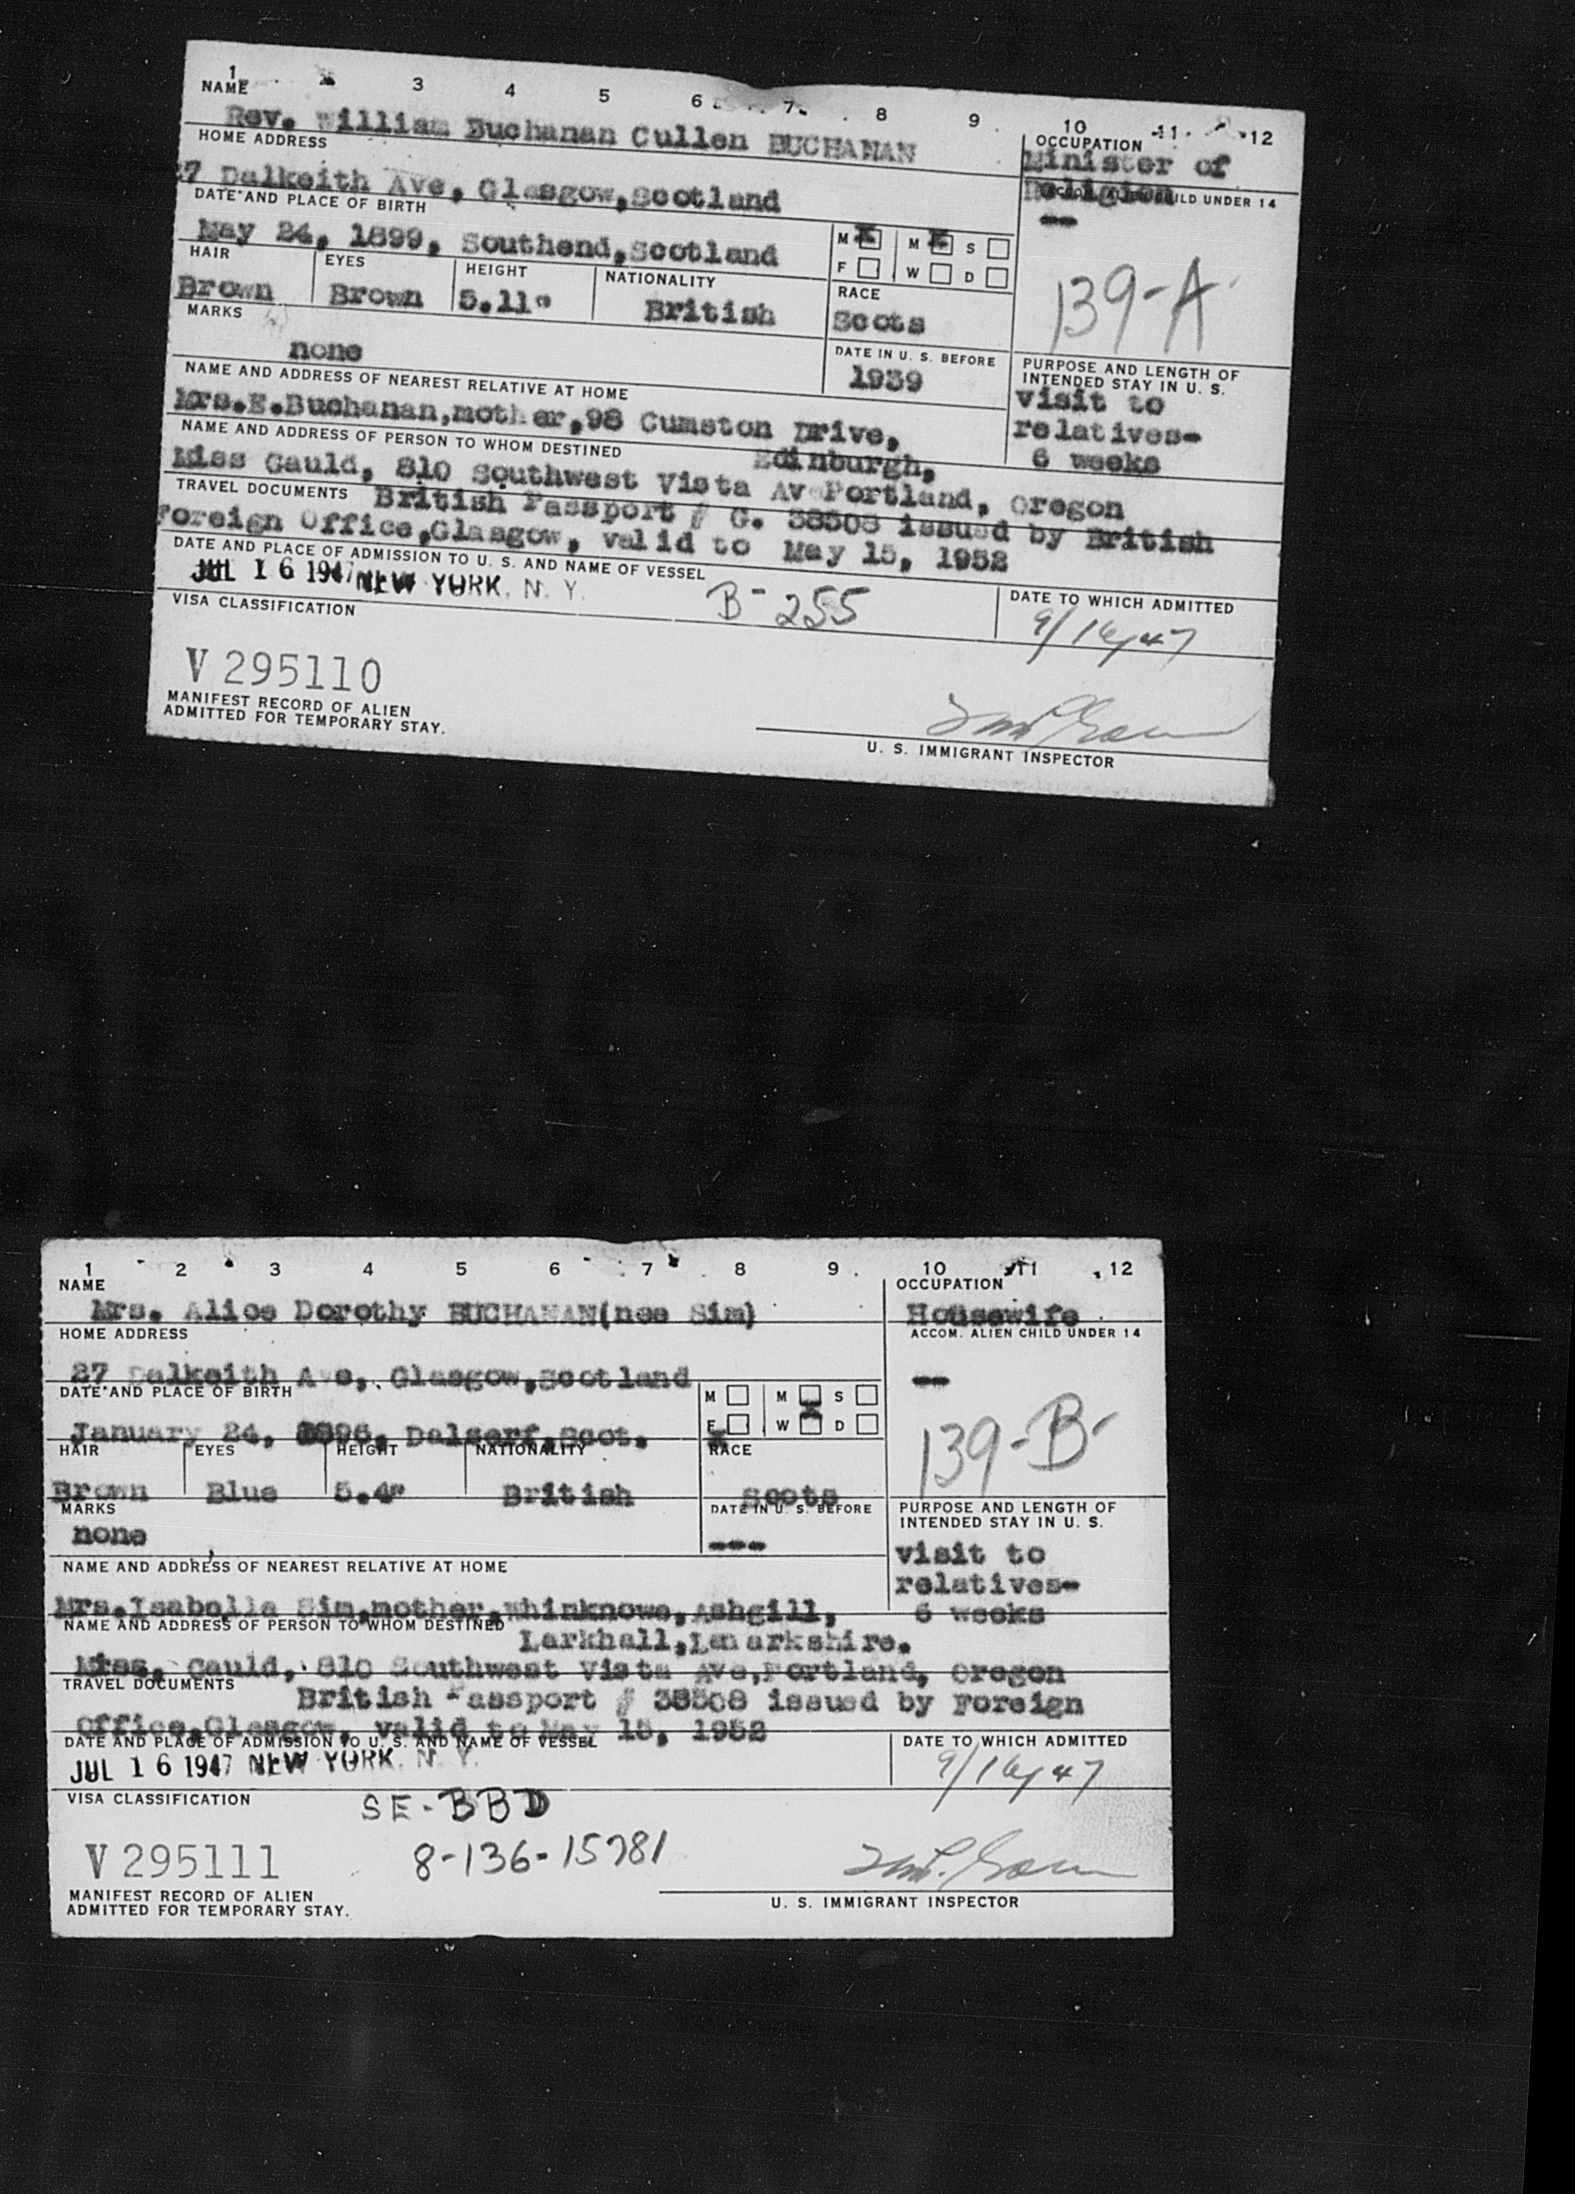 1 3 4 5 6 7 8 9 10 11 12
NAME
Rev. William Buchanan Cullen BUCHANAN
OCCUPATION
Minister of
Religion
HOME ADDRESS
27 Dalkeith Ave, Glasgow,Scotland
ILD UNDER 14
--
DATE AND PLACE OF BIRTH
May 24, 1899, Southend,Scotland
M X M X S
F W D
139-A
HAIR EYES HEIGHT NATIONALITY RACE
Brown Brown 5.11" British Scots
MARKS
none
DATE IN U. S. BEFORE
1939
PURPOSE AND LENGTH OF
INTENDED STAY IN U. S.
visit to
relatives-
6 weeks
NAME AND ADDRESS OF NEAREST RELATIVE AT HOME
Mrs.E.Buchanan,mother,98 Cumston Drive,
Edinburgh,
NAME AND ADDRESS OF PERSON TO WHOM DESTINED
Miss Gauld, 810 Southwest Vista Av Portland, Oregon
TRAVEL DOCUMENTS British Passport # G. 38508 issued by British
Foreign Office,Glasgow, valid to May 15, 1952
DATE AND PLACE OF ADMISSION TO U. S. AND NAME OF VESSEL
JUL 16 1947 NEW YORK, N. Y.
B-255
DATE TO WHICH ADMITTED
9/16/47
VISA CLASSIFICATION
V 295110
MANIFEST RECORD OF ALIEN
ADMITTED FOR TEMPORARY STAY.
U. S. IMMIGRANT INSPECTOR
1 2 3 4 5 6 7 8 9 10 11 12
NAME
Mrs. Alice Dorothy BUCHANAN(nee Sim)
OCCUPATION
Housewife
HOME ADDRESS
27 Dalkeith Ave, Glasgow,Scotland
ACCOM. ALIEN CHILD UNDER 14
--
DATE AND PLACE OF BIRTH
January 24, 1896, Dalserf,Scot.
M M S
F W D
X X
139-B-
HAIR EYES HEIGHT NATIONALITY RACE
Brown Blue 5.4" British Scots
MARKS
none
DATE IN U. S. BEFORE
---
PURPOSE AND LENGTH OF
INTENDED STAY IN U. S.
visit to
relatives-
6 weeks
NAME AND ADDRESS OF NEAREST RELATIVE AT HOME
Mrs.Isabella Sim,mother,Whinknowe,Ashgill,
Larkhall,Lanarkshire.
NAME AND ADDRESS OF PERSON TO WHOM DESTINED
Miss, Gauld, 810 Southwest Vista Ave,Portland, Oregon
TRAVEL DOCUMENTS
British Passport # 38508 issued by Foreign
Office,Glasgow, valid to May 15, 1952
DATE AND PLACE OF ADMISSION TO U. S. AND NAME OF VESSEL
JUL 16 1947 NEW YORK, N. Y.
DATE TO WHICH ADMITTED
9/16/47
VISA CLASSIFICATION
SE-BBD
8-136-15781
V 295111
MANIFEST RECORD OF ALIEN
ADMITTED FOR TEMPORARY STAY.
U. S. IMMIGRANT INSPECTOR